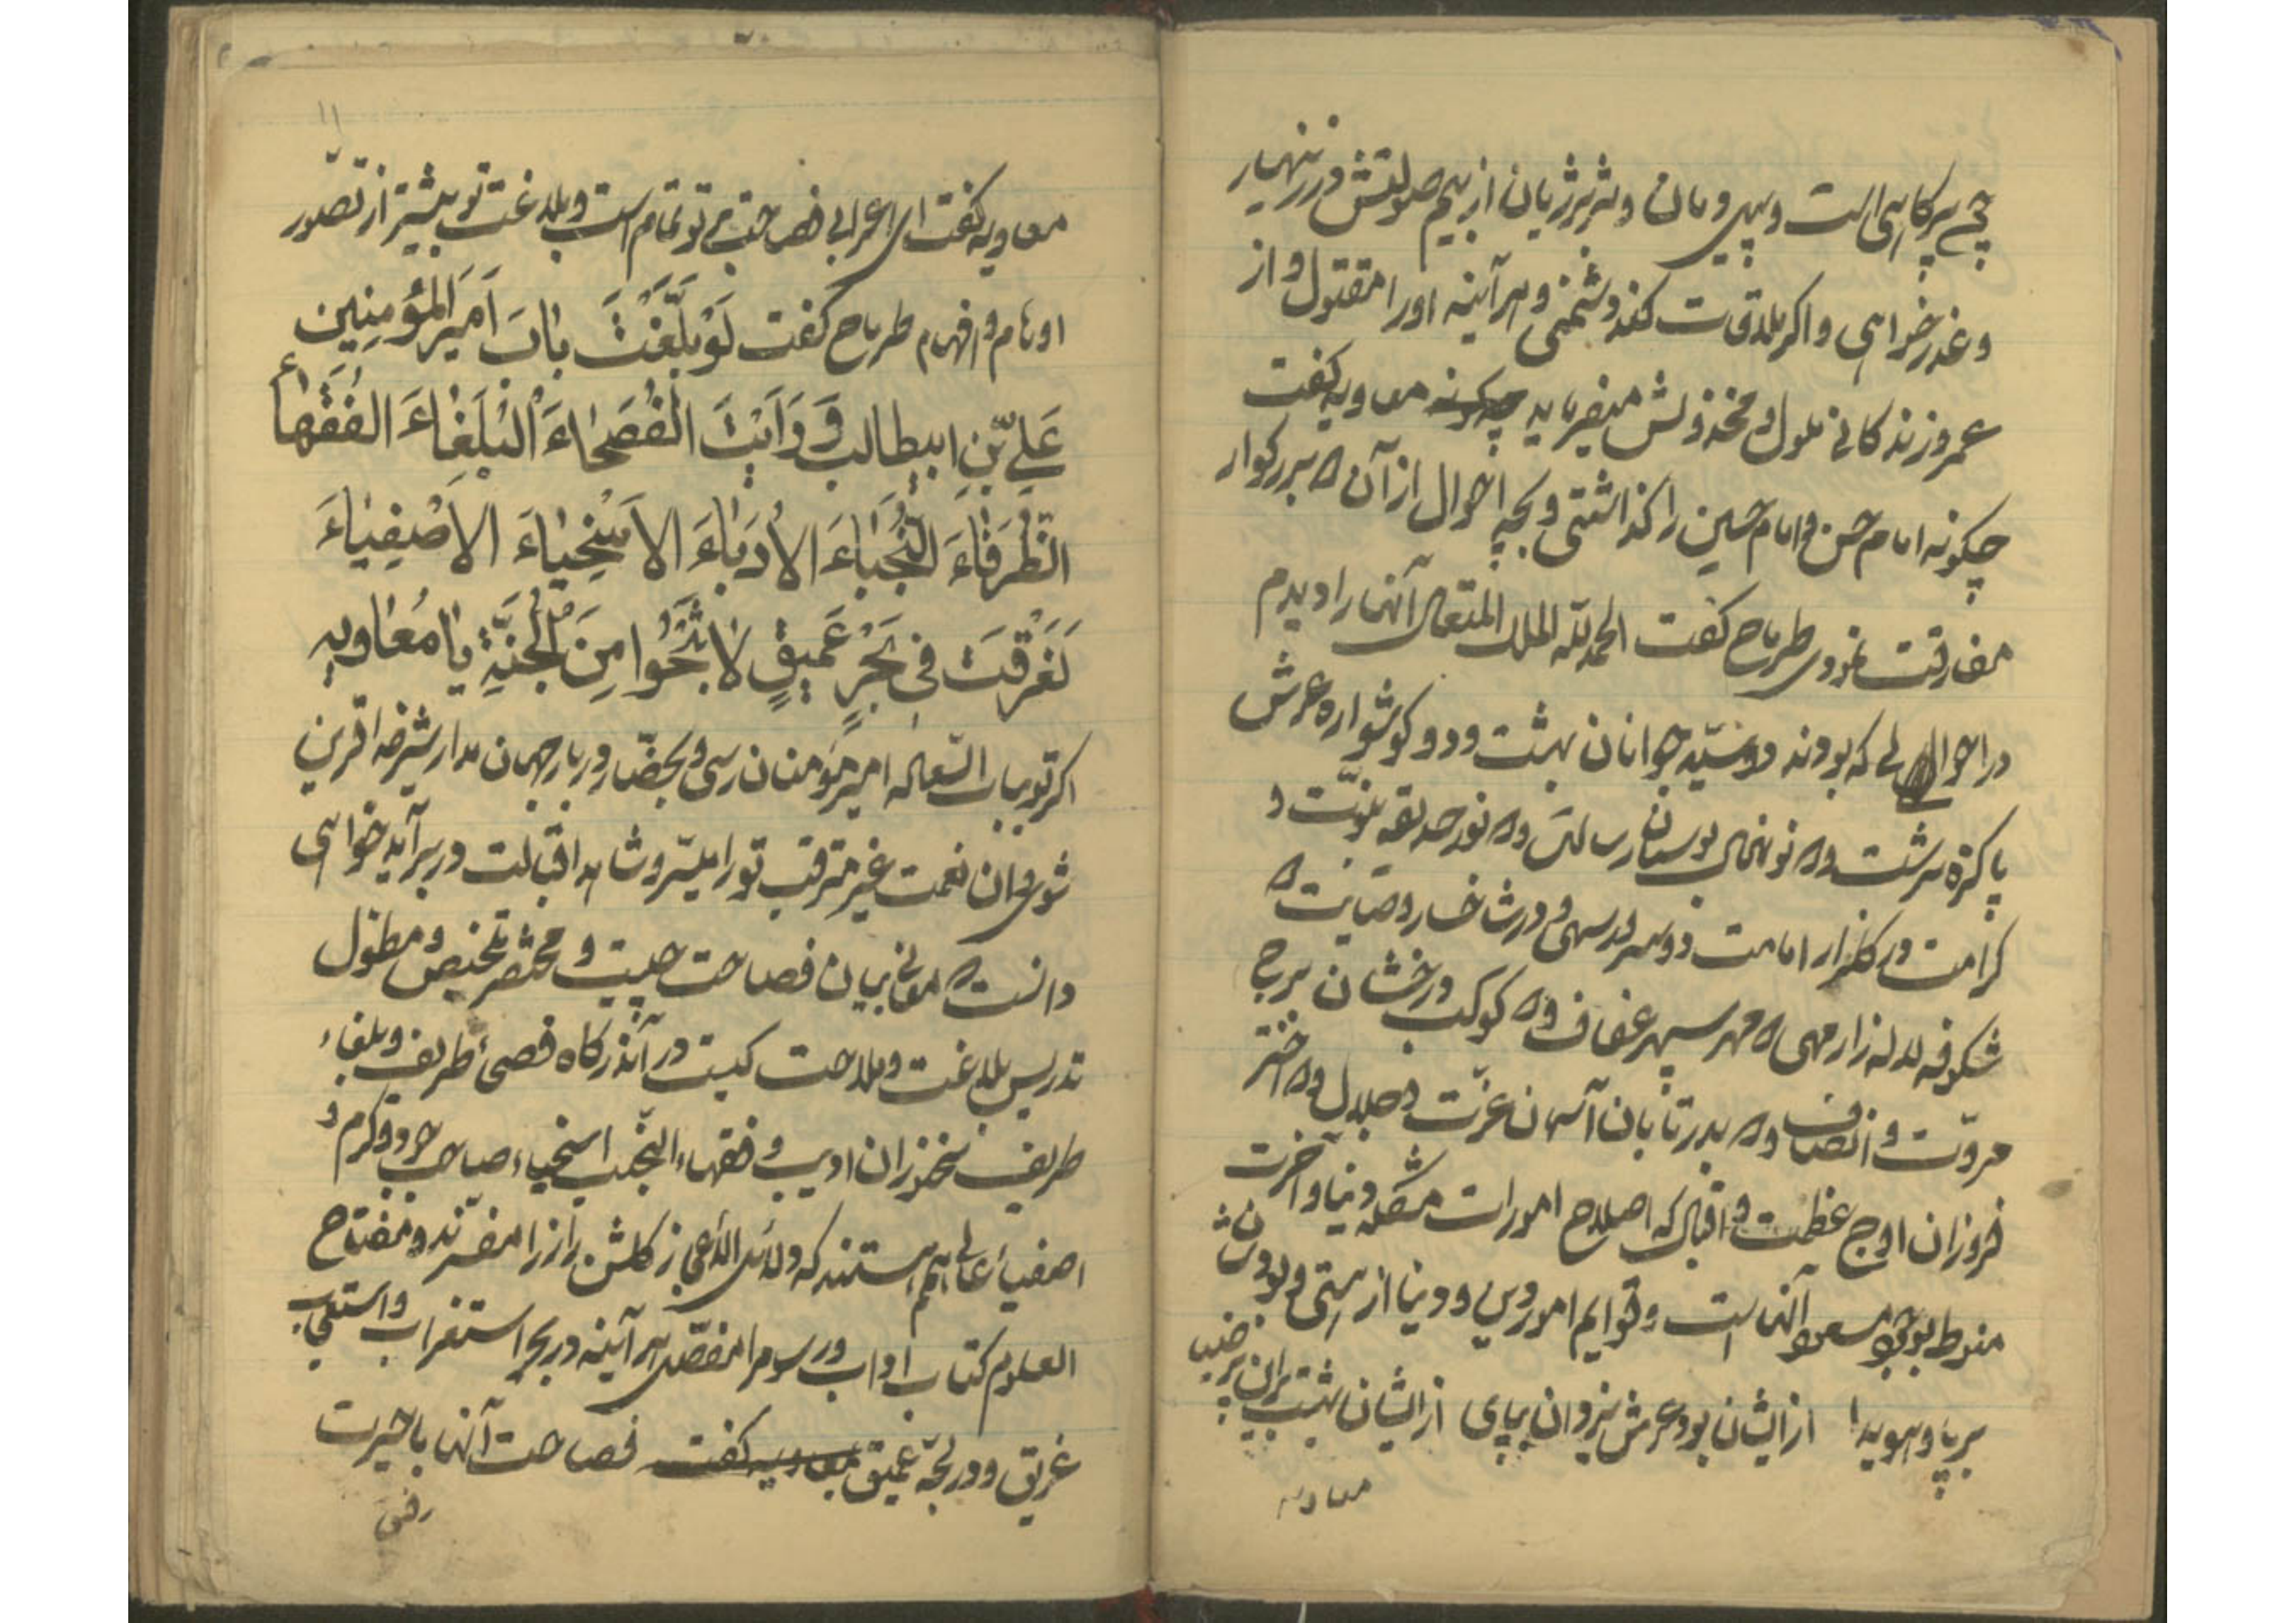 چه پرکاهی است و پیل دمان و شیر ژیان از بیم صولتش در زینهار
و عذر خواهی و اگر بلاقات کند دشمنی و هرآینه او را مقتول و از
عمر و زندگانی ملول و مخذولش میفرماید معاویه گفت
چکونه امام حسن و امام حسین را گذاشتی و بچه احوال از آن ۲ بزرگوار
مفارقت نمودی طرماح گفت الحمد لله الملک المتعال آنها را دیدم
در احوالی که بودند دو سید جوانان بهشت و دو گوشواره عرش
پاکیزه سرشت و ۲ نونهال بوستان رسالت و ۲ نور حدیقه نبوّت و
کرامت در گلزار امامت دو سرو سهی و در شاخسار وصایت ۲
شکوفه لاله زار مهی ۲ مهر سپهر عفاف و ۲ کوکب درخشان برج
مروّت و انصاف و ۲ بدر تابان آسمان عزّت و جلال و ۲ اختر
فروزان اوج عظمت و اقبال که اصلاح امورات مشکله دنیا و آخرت
منوط بوجود مسعود آنهاست و قوایم امور دین و دنیا از هستی و بودشان
برپا و هویدا از ایشان بود عرش یزدان بپای از ایشان بهشت برین
معاویه
۱۱
معاویه گفت ای اعرابی فصاحت تو تمام است و بلاغت تو بیشتر از تصوّر
اوهام و افهام طرماح گفت لَوْ بَلَّغْتَ بابَ اَمیرِ المؤمِنِین
عَلِیِّ بْنِ ابیطالب وَ رَاَیْتَ الْفُصَحٰاءَ الْبُلَغٰاءَ الفُقَهٰاءَ
الظُرَفٰاءَ النُّجَبٰاءَ الاُدَبٰاءَ الاَسْخِیٰاءَ الاَصْفِیٰاءَ
لَغَرَقْتَ فی بَحْرٍ عَمیقٍ لاٰ تَنْجُوا مِنَ الْجُنَّةِ یٰا مُعٰاویه
اگر تو بباب السّعاده امیر مؤمنان رسی و بحضّار دربار جهان مدار شرف اقرین
شوی و ان نعمت غیر مترقب تو را میسّر و شاهد اقبالت در بر آید خواهی
دانست ۲ معانی بیان فصاحت چیست و مختصر تلخیص و مطول
تدریس بلاغت و ملاحت کیست در آندرگاه فصحاء ظریف و بلغاء
طریف سخنوران ادیب و فقهاء النجیب اسخیاء صاحب جود و کرم و
اصفیاء عالی همم هستند که دلائل الاعجاز گلشن راز را مفسّرند و مفتاح
العلوم کتاب اداب و رسوم را مفصّل هرآینه در بحر استغراب و استعجاب
غریق و در لجّه عمیق معاویه گفت فصاحت آنها با حیرت
رفیق